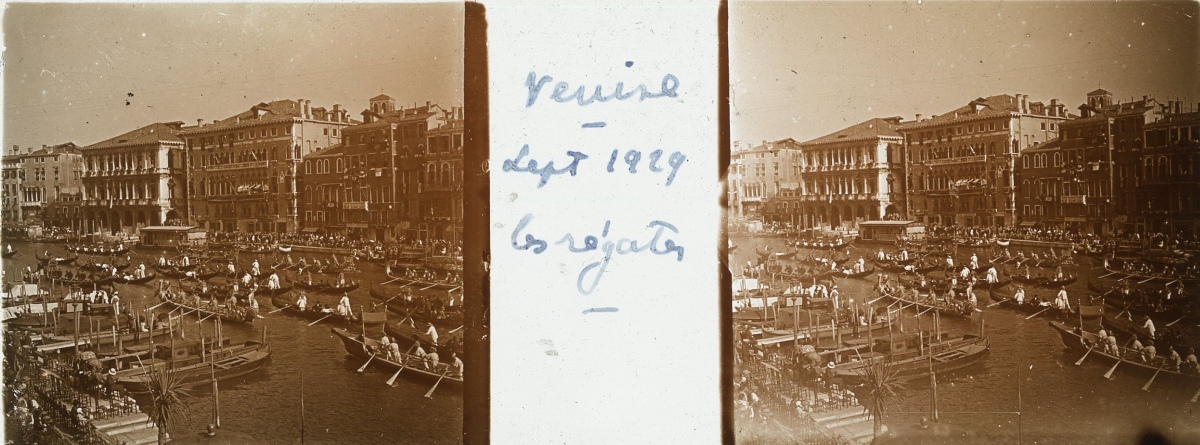 Venise
Sept 1929
les régates